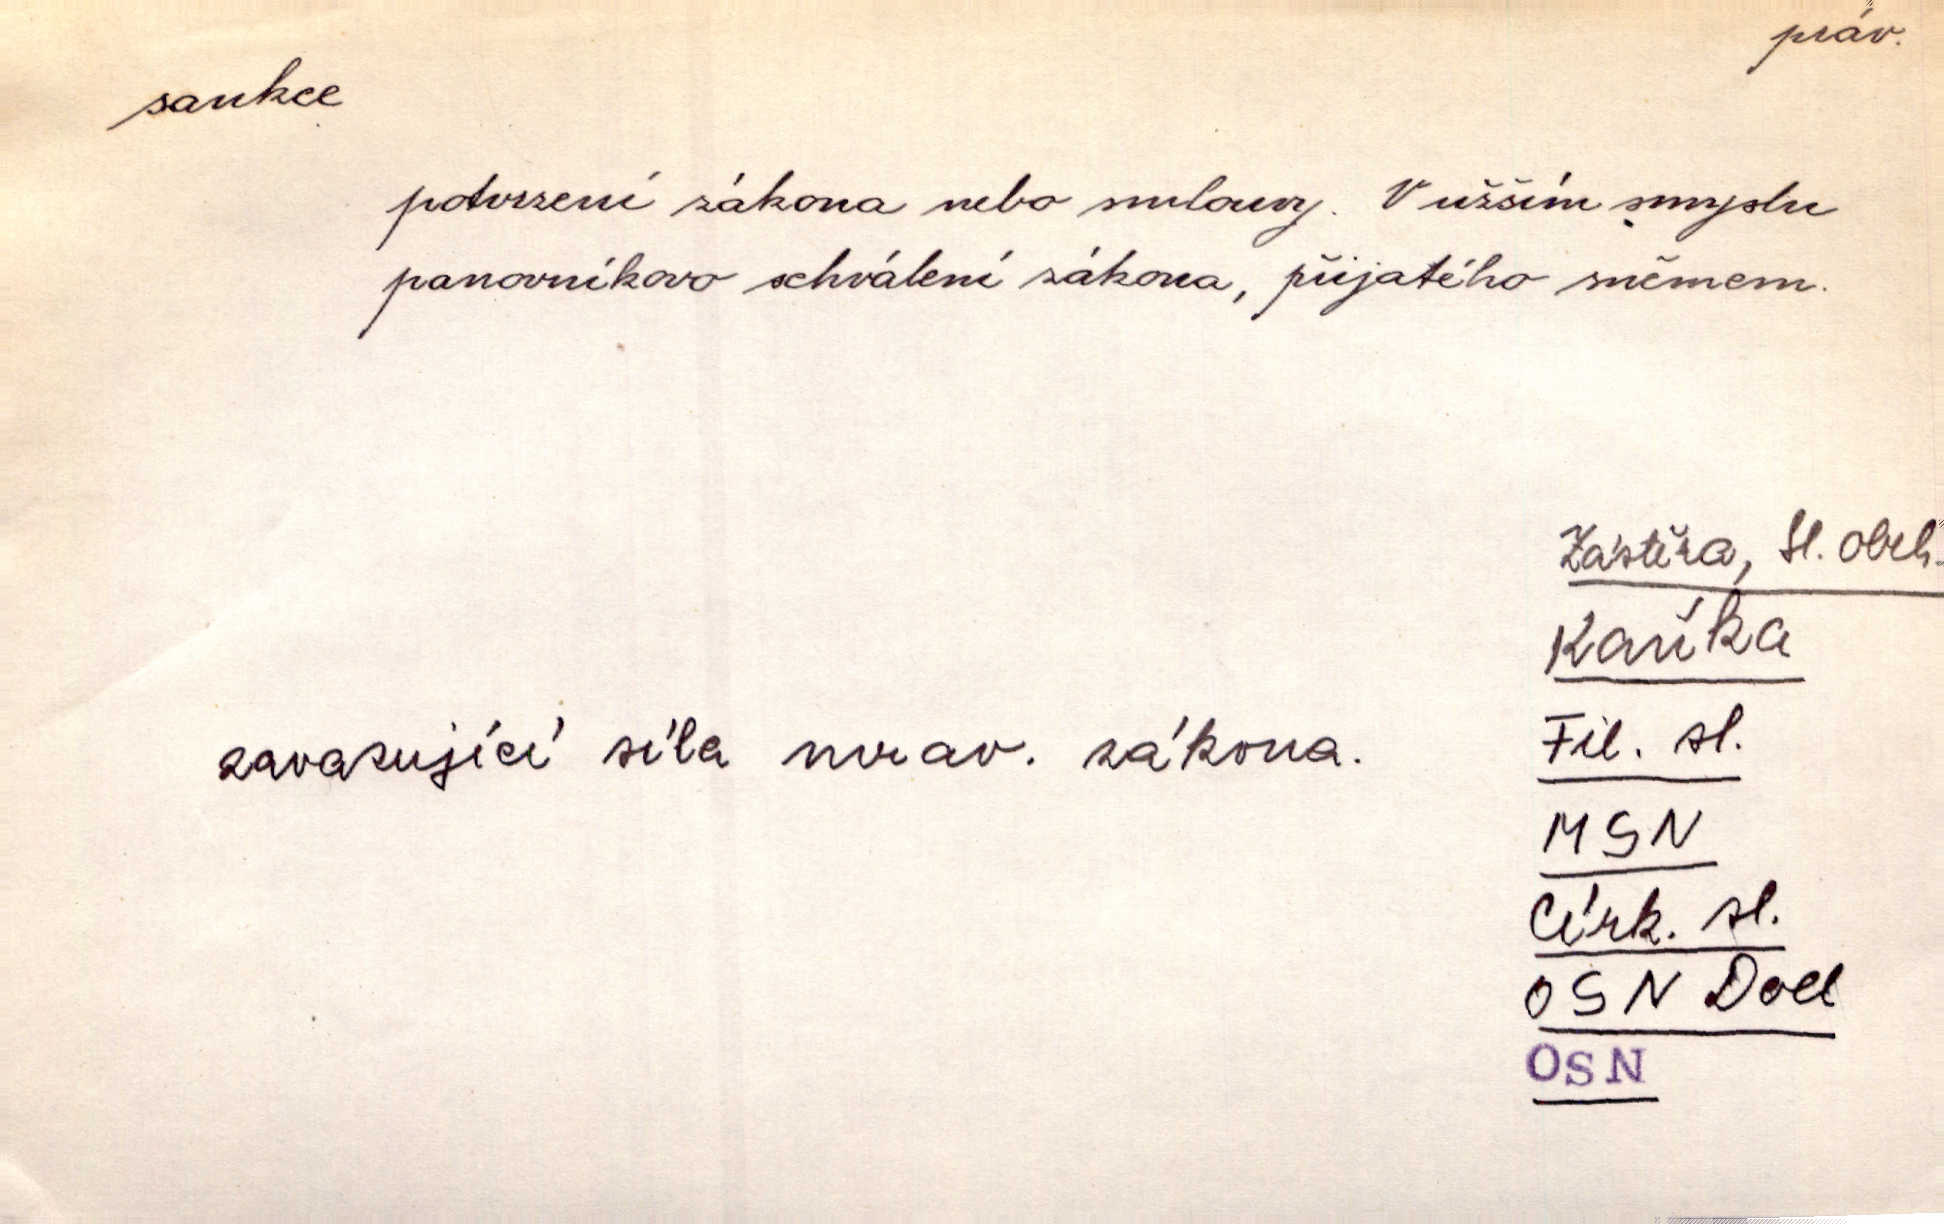 práv.
sankce
potvrzení zákona nebo smlouvy. V užším smyslu
panovníkovo schválení zákona, přijatého sněmem.
Zástěra, sl. obch.
Kaňka
zavazující síla mrav. zákona.
Fil. sl.
MSN
Círk. sl.
OSN Dod
OSN